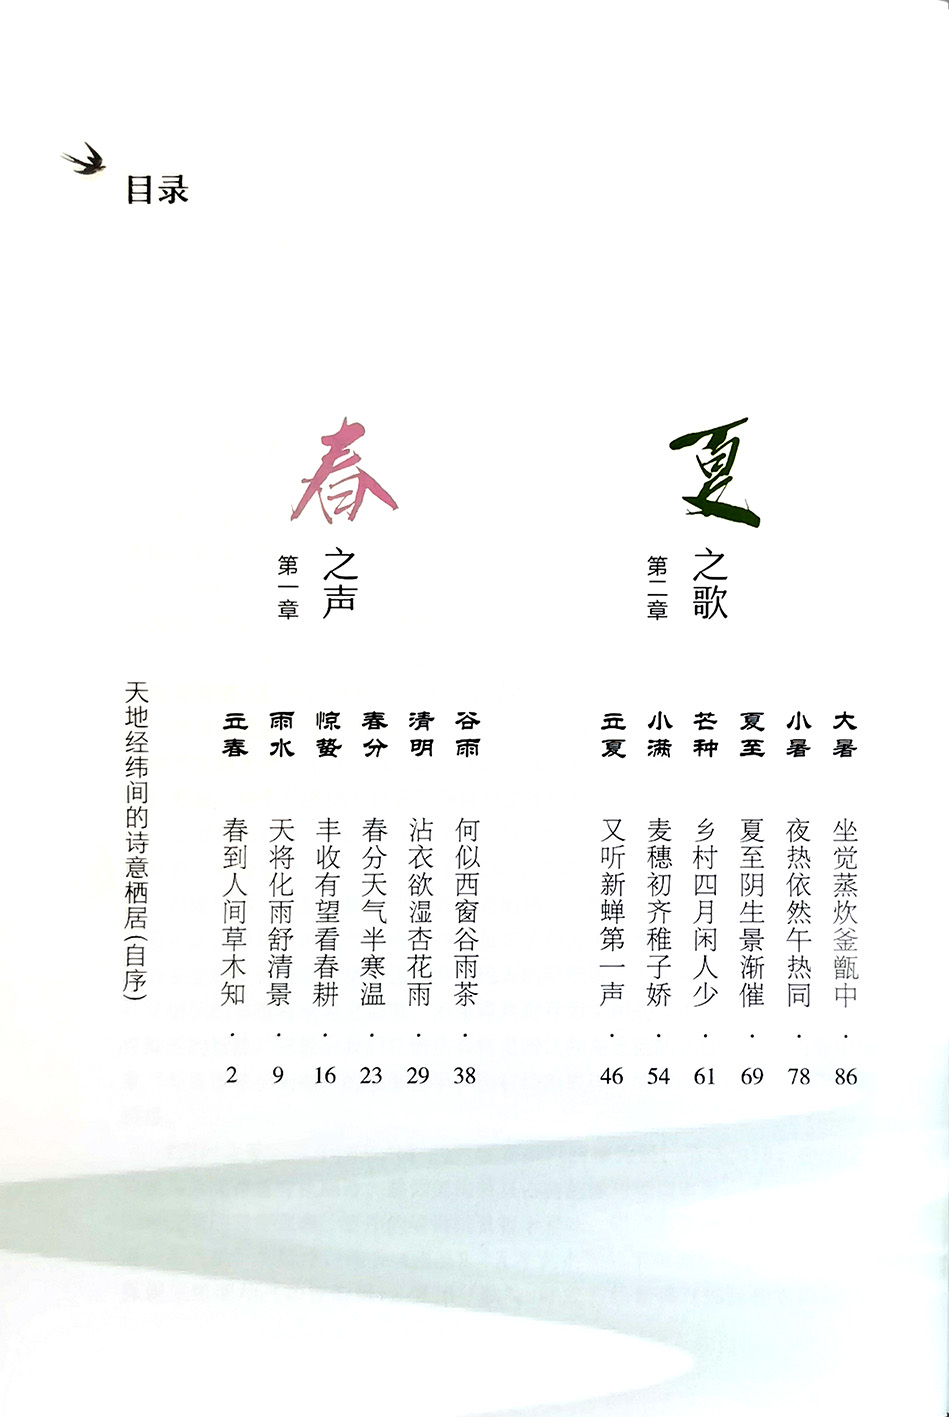 目录
天地经纬间的诗意栖居(自序)
春之声
第一章
立春 春到人间草木知 · 2
雨水 天将化雨舒清景 · 9
惊蛰 丰收有望看春耕 · 16
春分 春分天气半寒温 · 23
清明 沾衣欲湿杏花雨 · 29
谷雨 何似西窗谷雨茶 · 38
夏之歌
第二章
立夏 又听新蝉第一声 · 46
小满 麦穗初齐稚子娇 · 54
芒种 乡村四月闲人少 · 61
夏至 夏至阴生景渐催 · 69
小暑 夜热依然午热同 · 78
大暑 坐觉蒸炊釜甑中 · 86